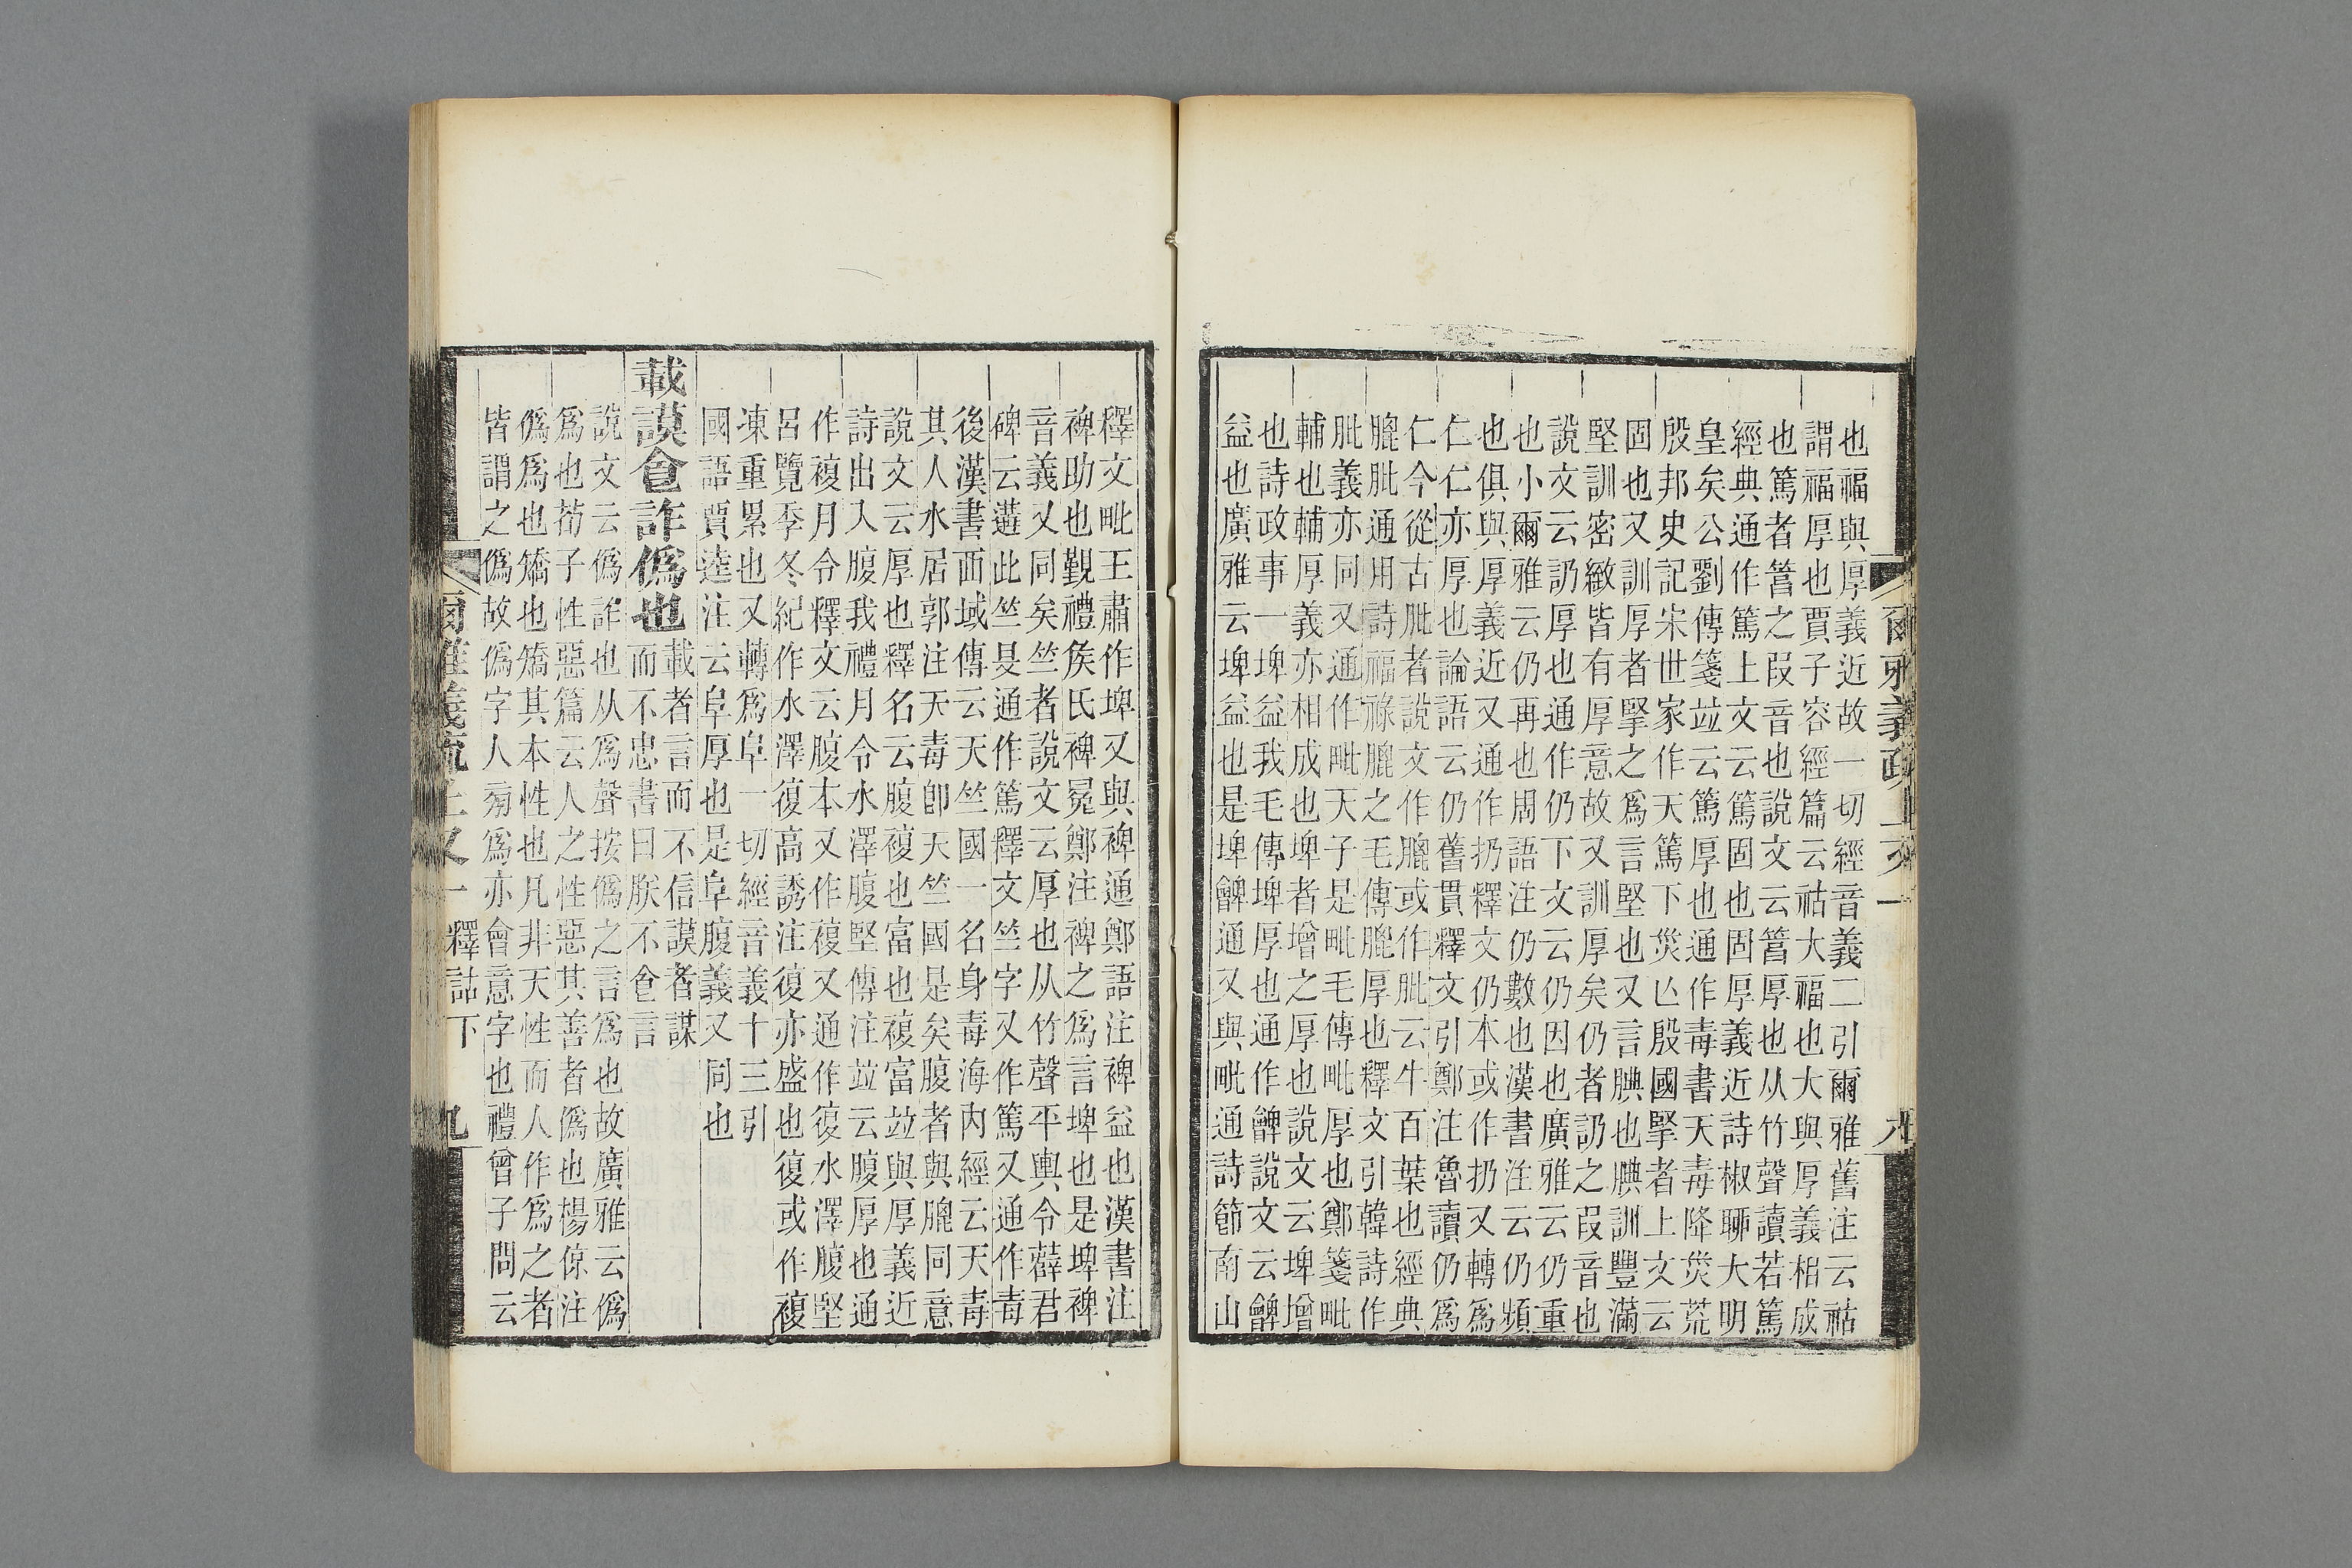 爾雅義疏上又一
八
也福與厚義近故一切經音義二引爾雅舊注云祜
謂福厚也賈子容經篇云祜大福也大與厚義相成
也篤者䈞之叚音也說文云䈞厚也从竹聲讀若篤
經典通作篤上文云篤固也固厚義近詩椒聊大明
皇矣公劉傳箋竝云篤厚也通作毒書天毒降災荒
殷邦史記宋世家作天篤下災亾殷國掔者上文云
固也又訓厚者掔之爲言堅也又言腆也腆訓豐滿
堅訓密緻皆有厚意故又訓厚矣仍者訒之叚音也
說文云訒厚也通作仍下文云仍因也廣雅云仍重
也小爾雅云仍再也周語注仍數也漢書注云仍頻
也俱與厚義近又通作扔釋文仍本或作扔又轉爲
仁仁亦厚也論語云仍舊貫釋文引鄭注魯讀仍爲
仁今從古肶者說文作膍或作肶云牛百葉也經典
膍肶通用詩福祿膍之毛傳膍厚也釋文引韓詩作
肶義亦同又通作毗天子是毗毛傳毗厚也鄭箋毗
輔也輔厚義亦相成也埤者增之厚也說文云埤增
也詩政事一埤益我毛傳埤厚也通作䚜說文云䚜
益也廣雅云埤益也是埤䚜通又與毗通詩節南山
釋文毗王肅作埤又與裨通鄭語注裨益也漢書注
裨助也覲禮矦氏裨冕鄭注裨之爲言埤也是埤裨
音義又同矣竺者說文云厚也从竹聲平輿令薛君
碑云遘此竺旻通作篤釋文竺字又作篤又通作毒
後漢書西域傳云天竺國一名身毒海內經云天毒
其人水居郭注天毒卽天竺國是矣腹者與膍同意
說文云厚也釋名云腹複也富也複富竝與厚義近
詩出入腹我禮月令水澤腹堅傳注竝云腹厚也通
作複月令釋文云腹本又作複又通作復水澤腹堅
呂覽季冬紀作水澤復高誘注復亦盛也復或作複
凍重累也又轉爲阜一切經音義十三引
國語賈逵注云阜厚也是阜腹義又同也
載謨食詐僞也載者言而不信謨者謀
而不忠書曰朕不食言
說文云僞詐也从爲聲按僞之言爲也故廣雅云僞
爲也荀子性惡篇云人之性惡其善者僞也楊倞注
僞爲也矯也矯其本性也凡非天性而人作爲之者
皆謂之僞故僞字人㫄爲亦會意字也禮曾子問云
爾雅義疏上又一
釋詁下
九